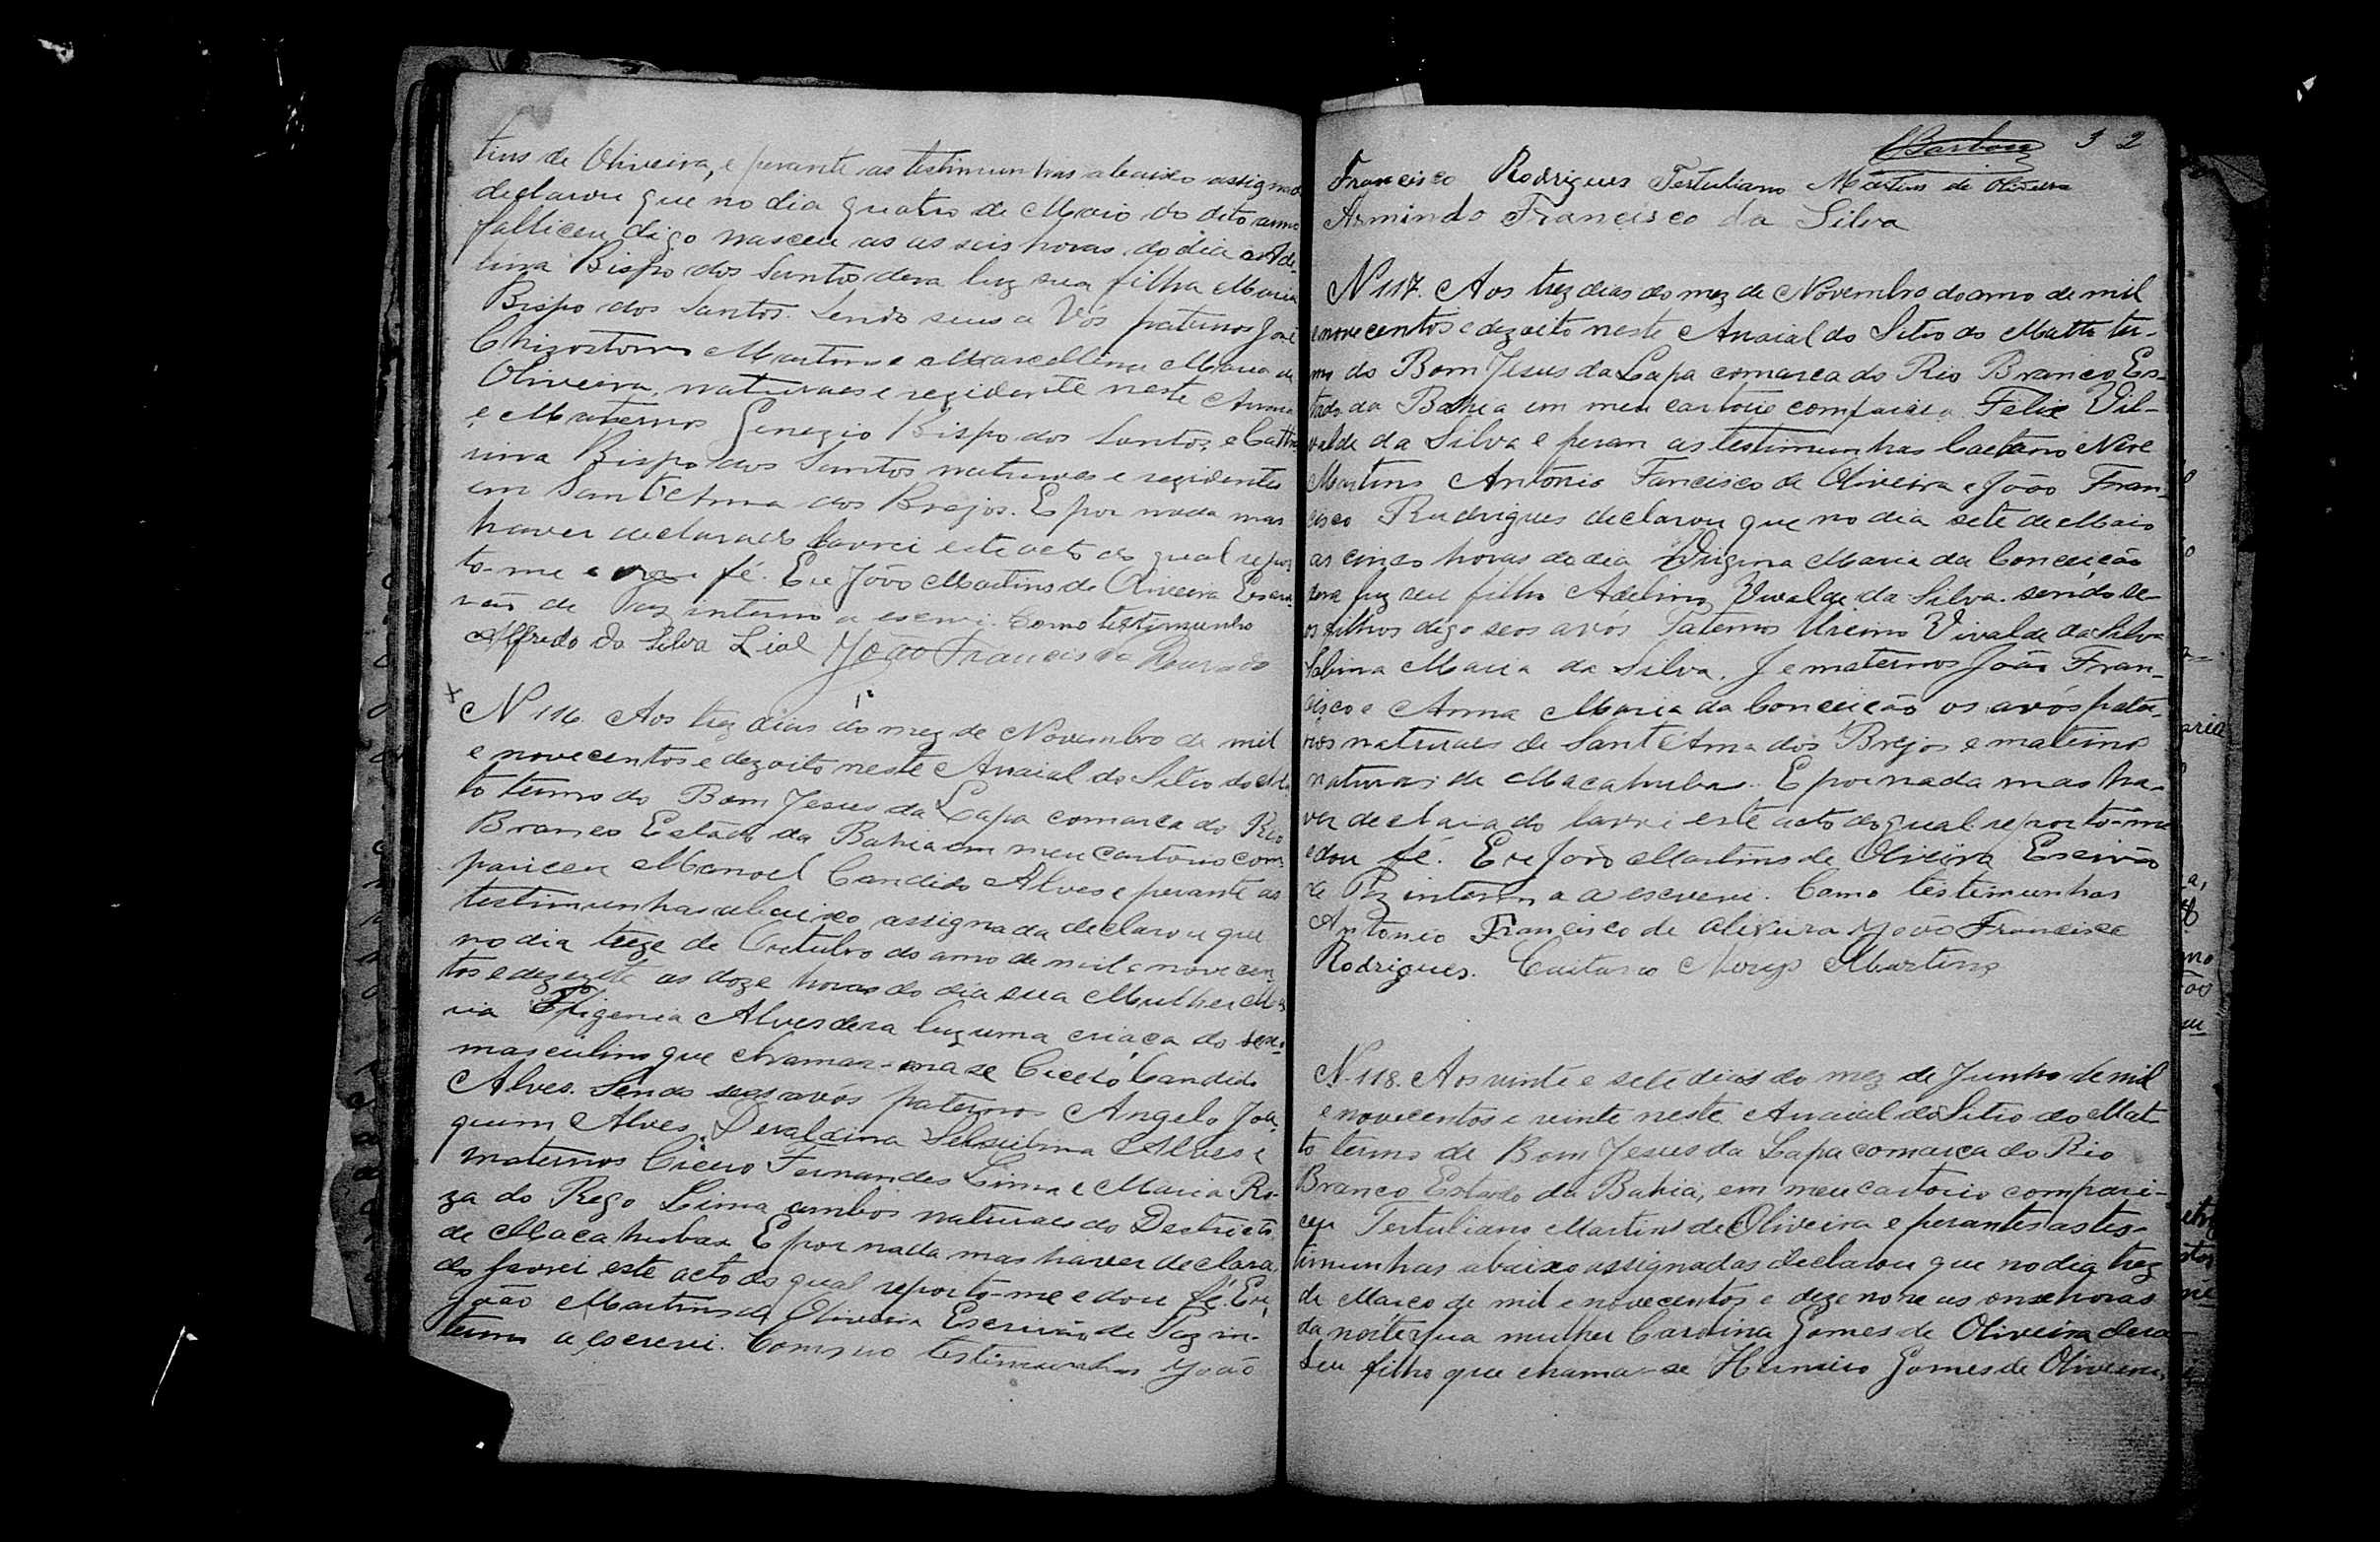 tins de Oliveira, e perante as testimunhas abaixo assignad
declarou que no dia quatro de Maio do dito anno
falliceu digo nasceu as as seis horas do dia Ade-
lina Bispo dos Santos dera luz sua filha Maria
Bispo dos Santos. Sendo seus a Vós paternos José
Chizostomo Martins e Marcellina Maria de
Oliveira, naturaes e rezidente neste
e Maternos Genezio Bispo dos Santos, e Cathe
rina Bispo dos Santos naturaes e rezidentes
em Sant'Anna dos Brejos. E por nada mas
haver declarado lavrei este acto do qual repor
to-me e dou fé. Eu João Martins de Oliveira Escri
vão de Paz interno a escrevi. Como testimunho
Alfredo da Silva Lial João Francisco Dourado
N 116. Aos trez dias do mez de Novembro de mil
e novecentos e dezoito neste Arraial do Sitio do Ma
to termo do Bom Jesus da Lapa comarca do Rio
Branco Estado da Bahia em meu cartorio com
pariceu Manoel Candido Alves e perante as
testimunhas abaixo assignada declarou que
no dia treze de Outubro do anno de mil e novecen
tos e dezezete as doze horas do dia sua Mulher Ma
ria Efigenia Alves dera luz uma criaça do sexo
masculino que chamar-ma se Cicero Candido
Alves. Sendo seos avós paternos Angelo Joa
quim Alves, Alves e
maternos Cicero Fernandes Lima e Maria Ro-
za do Rego Lima ambos naturaes do Destricto
de Macahubas E por nada mas haver declara
do lavrei este acto do qual reporto-me e dou fé. Eu,
João Martins de Oliveira Escrivão de Paz in-
terno a escrevi. Como testimunhas João
Barbosa 32
Francisco Rodrigues Tertuliano Martins de Oliveira
Armindo Francisco da Silva
N 117. Aos trez dias do mez de Novembro do anno de mil
e novecentos e dezoito neste Arraial do Sitio do Matto ter-
mo do Bom Jesus da Lapa comarca do Rio Branco Es-
tado da Bahia em meu cartorio compariceo Felix Vil-
valde da Silva e peran as testimunhas Caetano Neve
Martins Antonio Fancisco de Oliveira e João Fran-
cisco Rudrigues declarou que no dia sete de Maio
as cinco horas do dia Maria da Conceição
dera luz seu filho Adelino Vivalde da Silva. sendo se-
os filhos digo seos avós Paternos Vivalde da Silva
Sabina Maria da Silva. J e maternos João Fran-
cisco e Anna Maria da Conceição os avós pater-
nos naturaes de Sant'Anna dos Brejos e materno
naturas de Macahubas. E por nada mas ha-
ver declarado lavrei este acto do qual reporto-me
e dou fé. Eu João Martins de Oliveira Escivão
de Paz interno a a escrevi. Como testimunhas
Antonio Francisco de Oliveira João Francisco
Rodrigues. Caitano Neves Martins
N. 118. Aos vinte e sete dias do mez de Junho de mil
e novecentos e vinte neste Arraial do Sitio do Mat
to termo de Bom Jesus da Lapa comarca do Rio
Branco Estado da Bahia, em meu cartorio compari-
ceu Tertuliano Martins de Oliveira e perantes as tes-
timunhas abaixo assignadas declarou que no dia trez
de Março de mil e novecentos e dezenove as onse horas
da noite sua mulher Carolina Gomes de Oliveira dera
seu filho que chama-se Gomes de Oliveira,